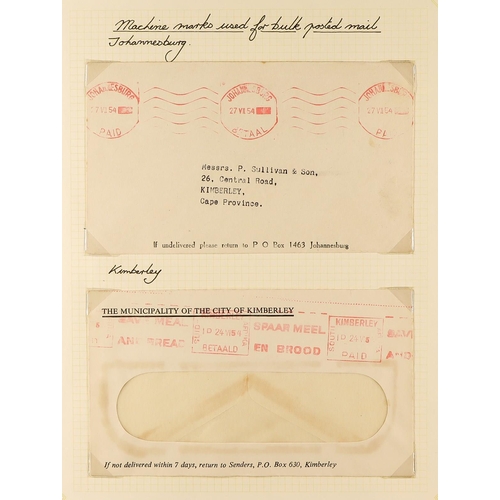 Machine marks used for bulk posted mail
Johannesburg.
JOHANNESBURG
27 VI 54
PAID
JOHANNESBURG
27 VI 54
BETAAL
27 VI 54
Messrs. P. Sullivan & Son,
26, Central Road,
KIMBERLEY,
Cape Province.
If undelivered please return to P O Box 1463 Johannesburg
Kimberley
THE MUNICIPALITY OF THE CITY OF KIMBERLEY
MEAL
AND BREAD
BETAALD
SPAAR MEEL
EN BROOD
KIMBERLEY
PAID
AND
If not delivered within 7 days, return to Senders, P.O. Box 630, Kimberley